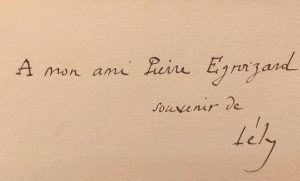 A mon ami Pierre Egroizard
souvenir de
Lély